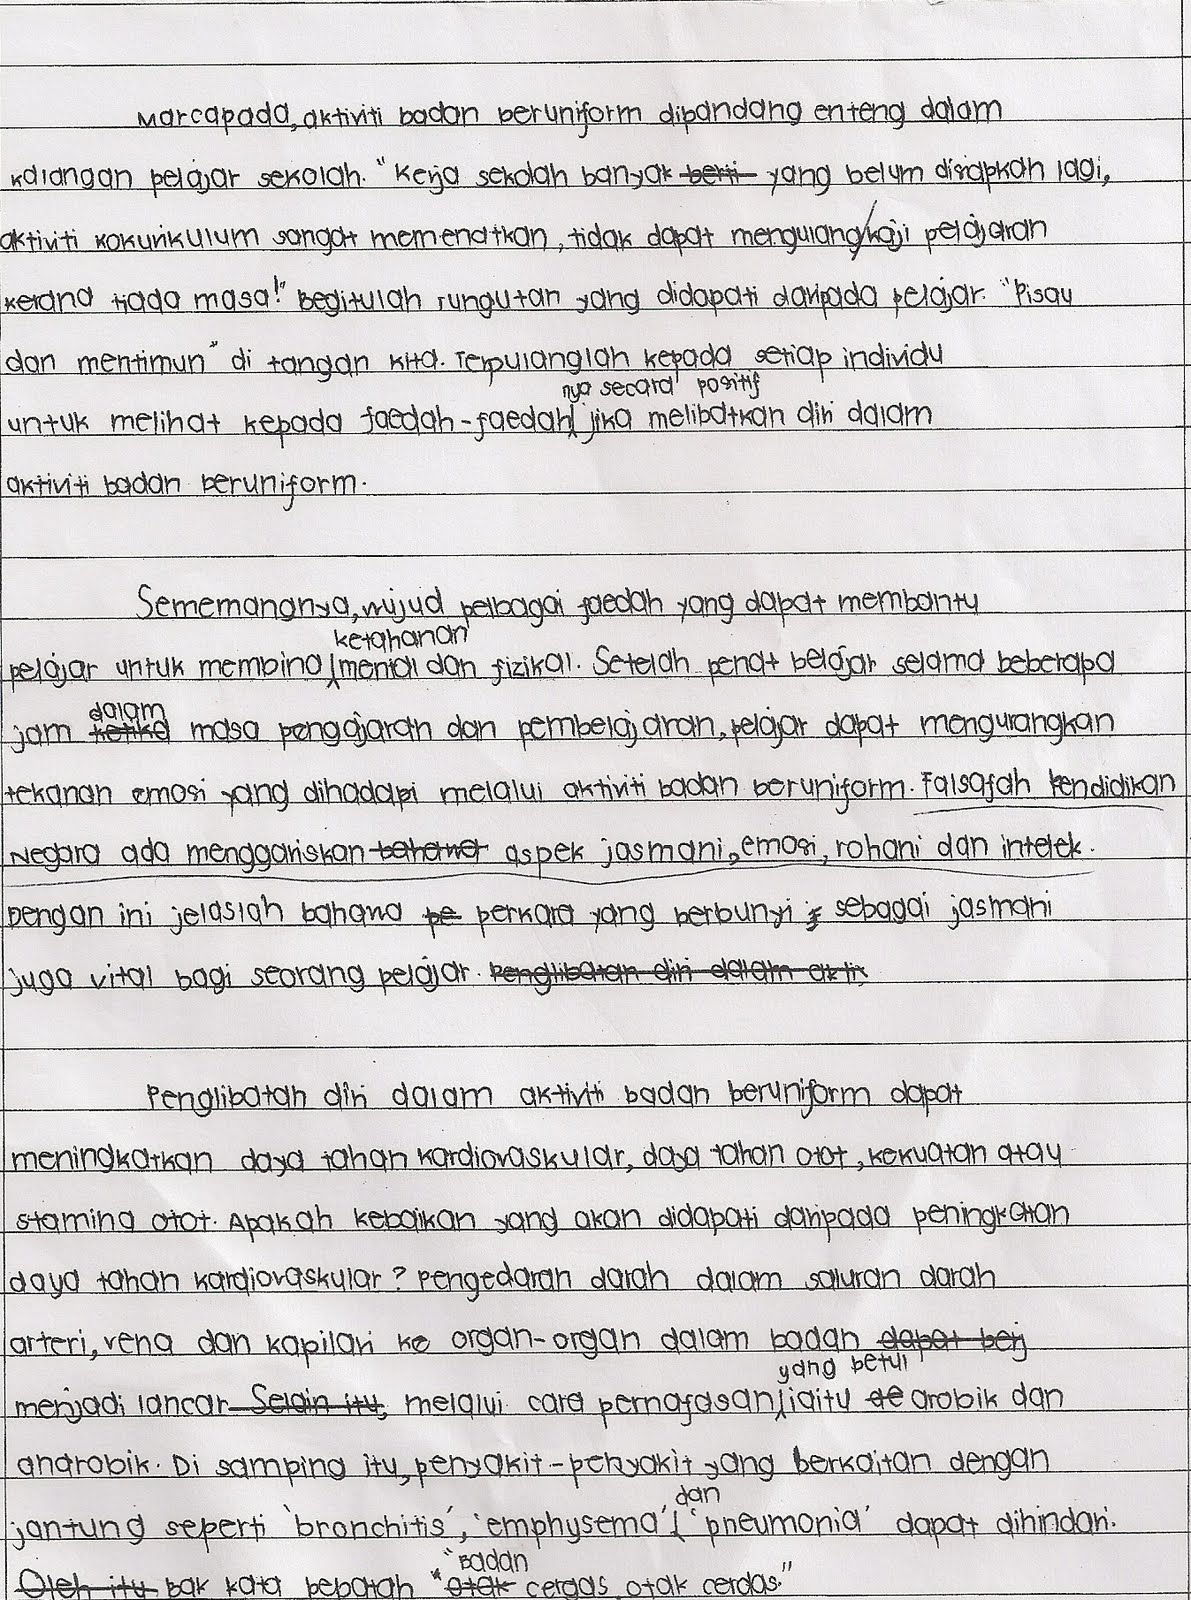 Marcapada, aktiviti badan beruniform dipandang enteng dalam
kalangan pelajar sekolah. "Kerja sekolah banyak berti yang belum disiapkan lagi,
aktiviti kokurikulum sangat memenatkan, tidak dapat mengulang/kaji pelajaran
kerana tiada masa!" Begitulah rungutan yang didapati daripada pelajar. "Pisau
dan mentimun" di tangan kita. Terpulanglah kepada setiap individu
nya secara positif
untuk melihat kepada faedah-faedah jika melibatkan diri dalam
aktiviti badan beruniform.
Sememangnya, wujud pelbagai faedah yang dapat membantu
ketahanan
pelajar untuk membina mental dan fizikal. Setelah penat belajar selama beberapa
dalam
jam ketika masa pengajaran dan pembelajaran, pelajar dapat mengurangkan
tekanan emosi yang dihadapi melalui aktiviti badan beruniform. Falsafah Pendidikan
Negara ada menggariskan bahawa aspek jasmani, emosi, rohani dan intelek.
Dengan ini jelaslah bahawa pe perkara yang berbunyi sebagai jasmani
juga vital bagi seorang pelajar. Penglibatan diri dalam akti
Penglibatan diri dalam aktiviti badan beruniform dapat
meningkatkan daya tahan kardiovaskular, daya tahan otot, kekuatan atau
stamina otot. Apakah kebaikan yang akan didapati daripada peningkatan
daya tahan kardiovaskular? Pengedaran darah dalam saluran darah
arteri, vena dan kapilari ke organ-organ dalam badan dapat berj
yang betul
menjadi lancar Selain itu, melalui cara pernafasan iaitu ae arobik dan
anarobik. Di samping itu, penyakit-penyakit yang berkaitan dengan
dan
jantung seperti 'bronchitis', 'emphysema' 'pneumonia' dapat dihindari.
"Badan
Oleh itu bak kata pepatah "otak cergas otak cerdas."